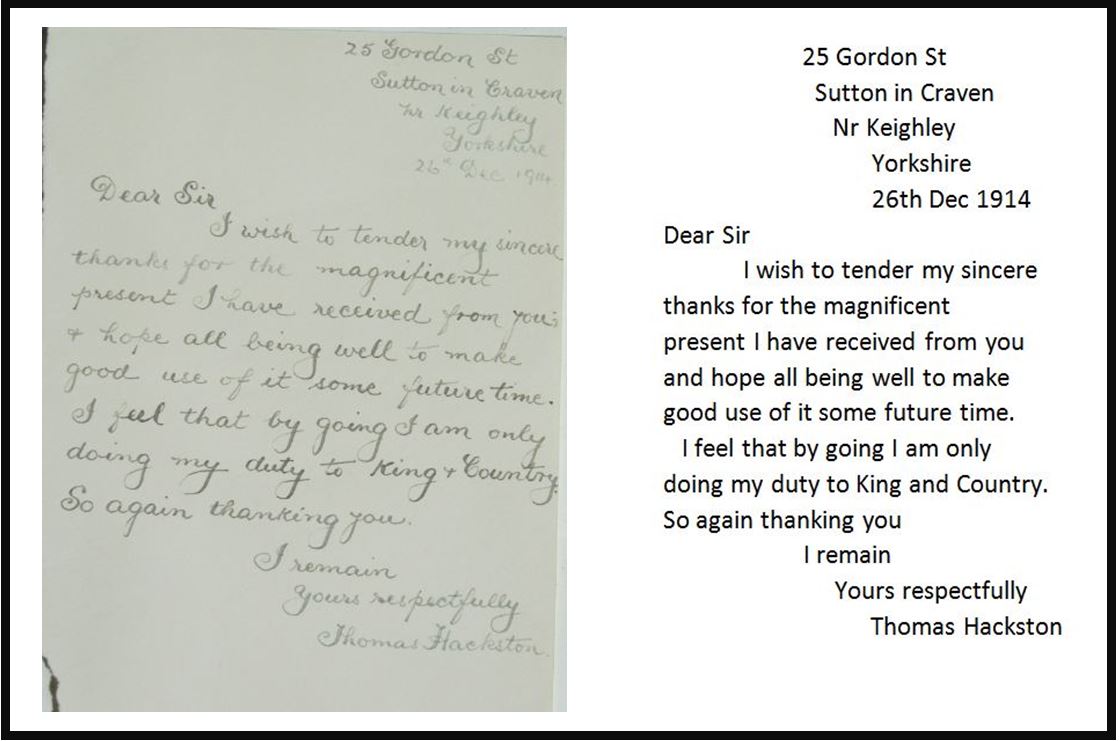 25 Gordon St
Sutton in Craven
Nr Keighley
Yorkshire
26th Dec 1914
Dear Sir
I wish to tender my sincere
thanks for the magnificent
present I have received from you;
+ hope all being well to make
good use of it some future time.
I feel that by going I am only
doing my duty to King + Country.
So again thanking you.
I remain
Yours respectfully
Thomas Hackston.
25 Gordon St
Sutton in Craven
Nr Keighley
Yorkshire
26th Dec 1914
Dear Sir
I wish to tender my sincere
thanks for the magnificent
present I have received from you
and hope all being well to make
good use of it some future time.
I feel that by going I am only
doing my duty to King and Country.
So again thanking you
I remain
Yours respectfully
Thomas Hackston